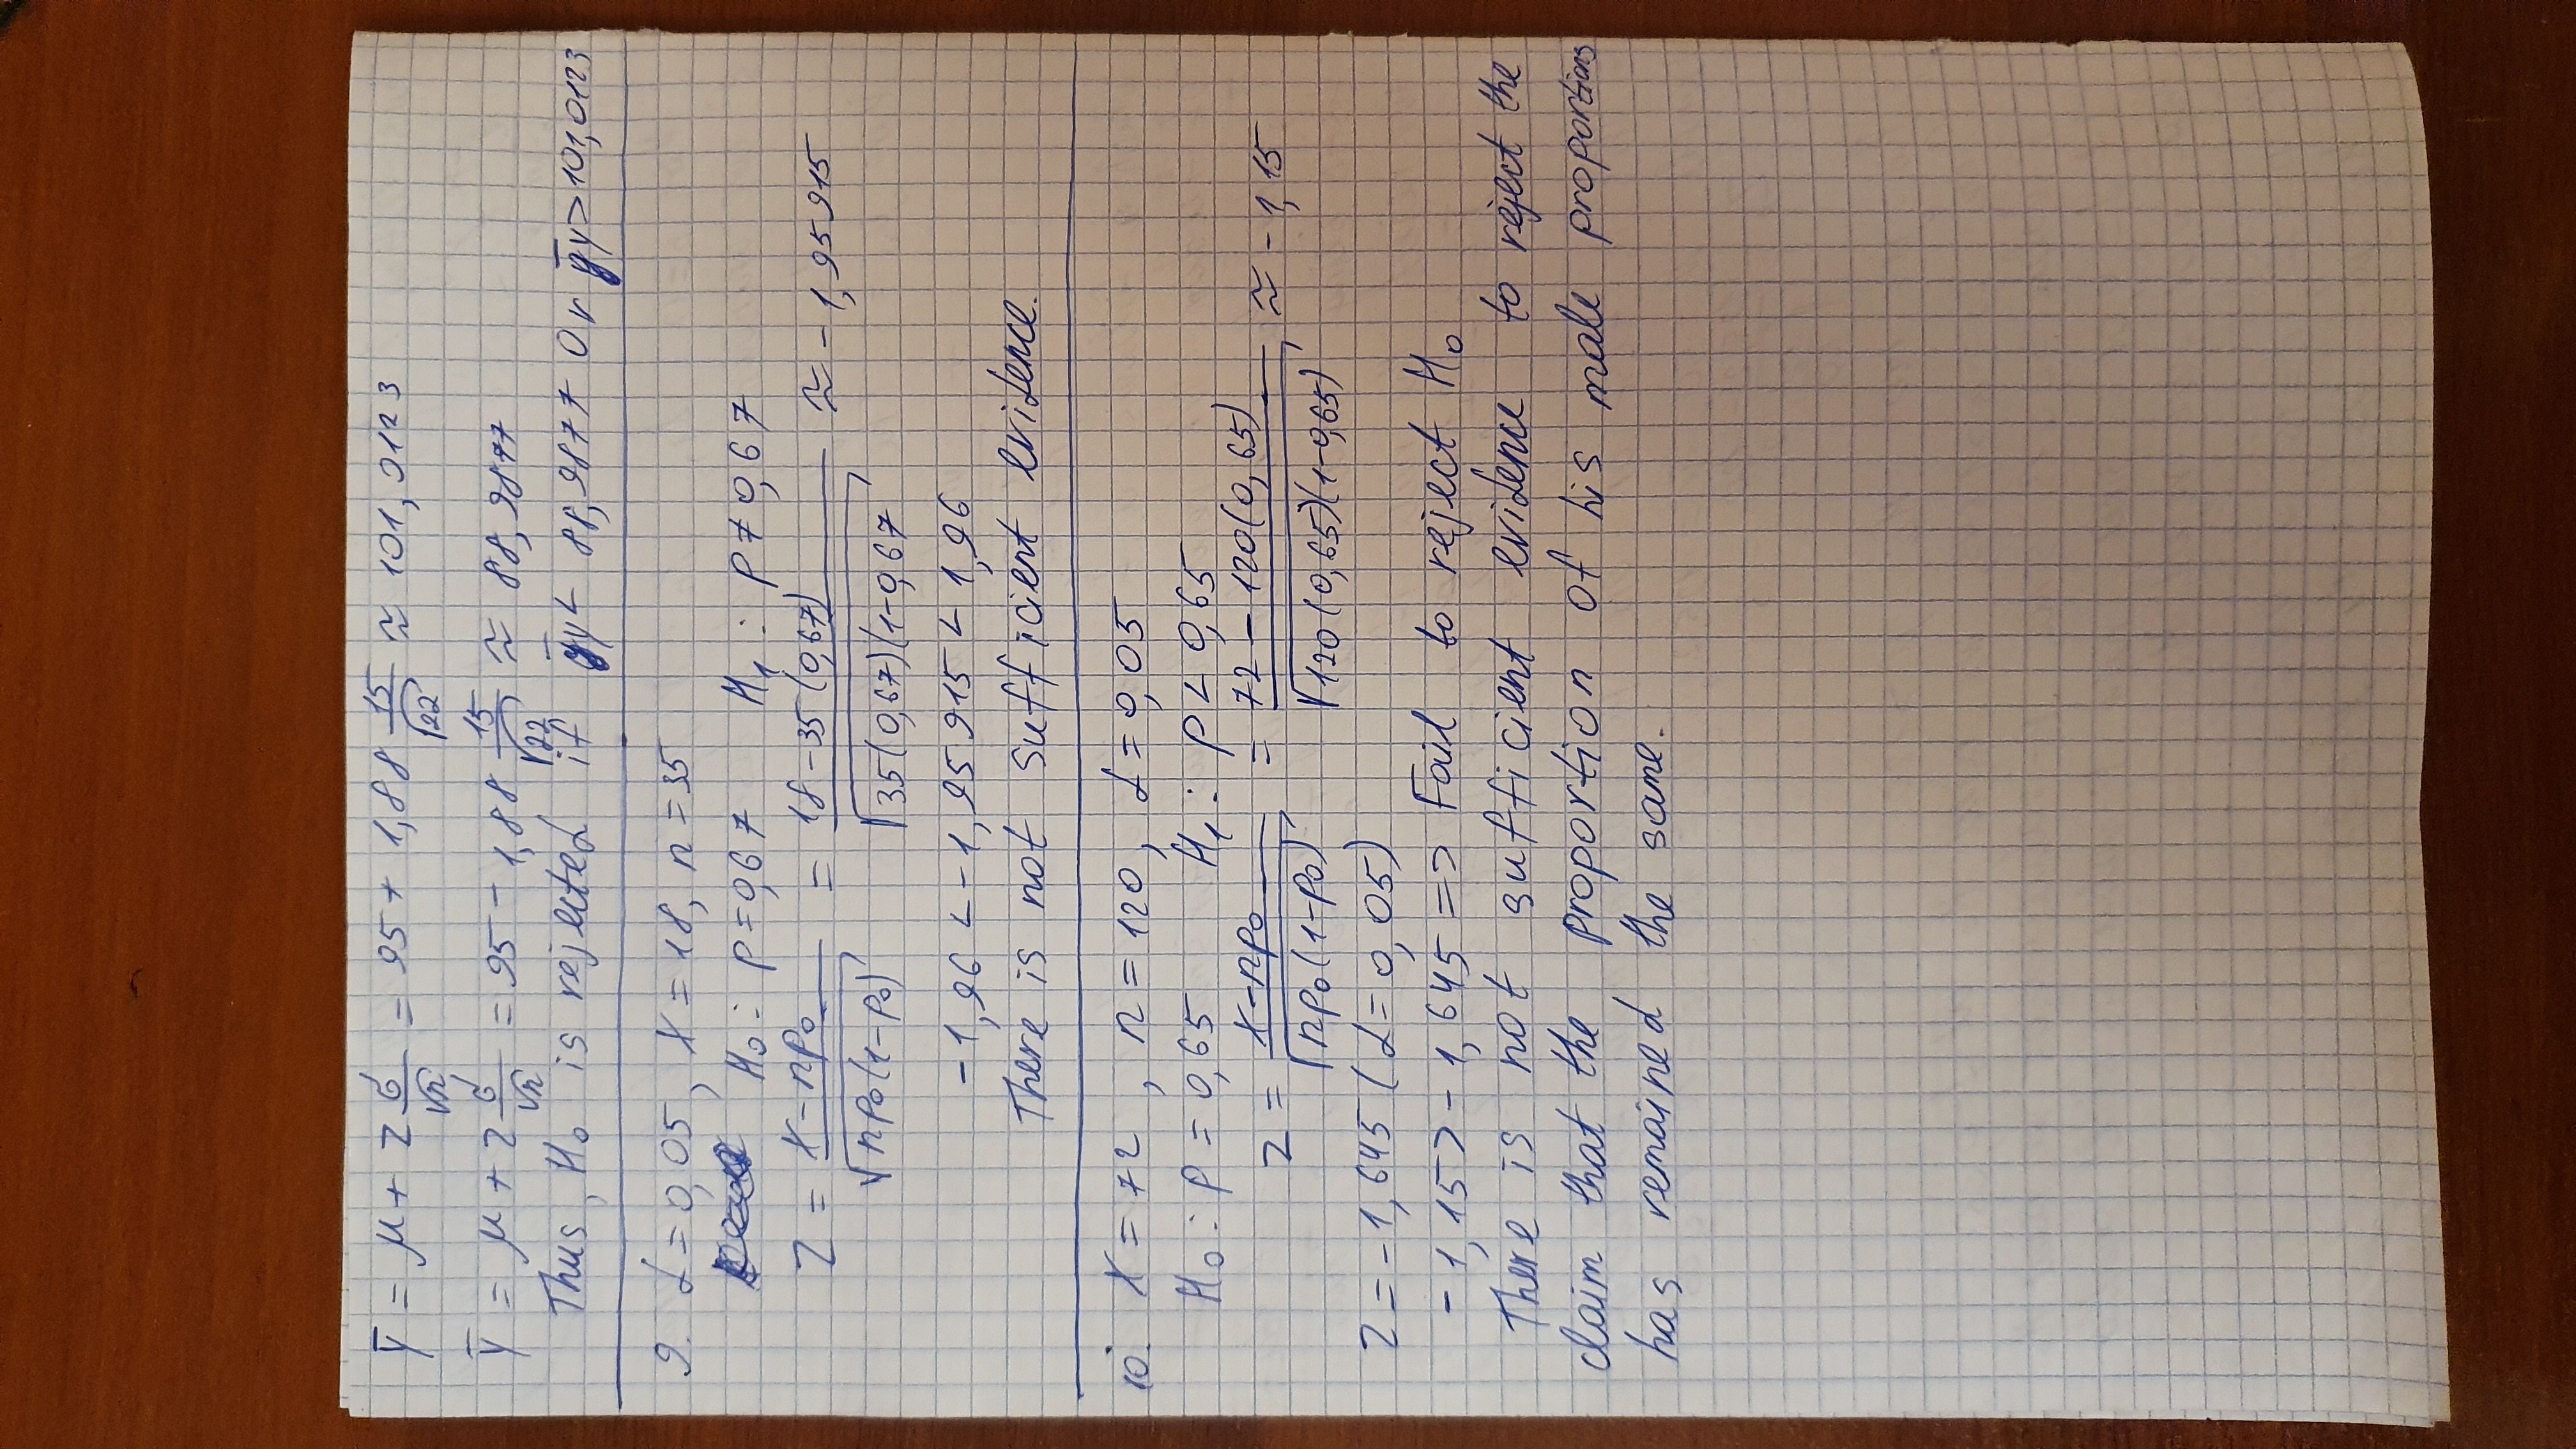 ȳ = μ + z σ/√n = 95 + 1,88 15/√22 ≈ 101,0123
ȳ = μ + z σ/√n = 95 - 1,88 15/√22 ≈ 88,9877
Thus, H₀ is rejected if ȳ < 88,9877 Or ȳ > 101,0123
9. α = 0,05, X = 18, n = 35
H₀ : p = 0,67 H₁ : p ≠ 0,67
Z = (X - np₀)/√(np₀(1-p₀)) = (18 - 35(0,67))/√(35(0,67)(1-0,67 ≈ -1,95915
-1,96 < -1,95915 < 1,96
There is not sufficient evidence.
10. X = 72, n = 120, α = 0,05
H₀ : p = 0,65 H₁ : p < 0,65
z = (X - np₀)/√(np₀(1-p₀)) = (72 - 120(0,65))/√(120(0,65)(1-0,65)) ≈ -1,15
Z = -1,645 (α = 0,05)
-1,15 > -1,645 => Fail to reject H₀
There is not sufficient evidence to reject the
claim that the proportion of his male proportions
has remained the same.